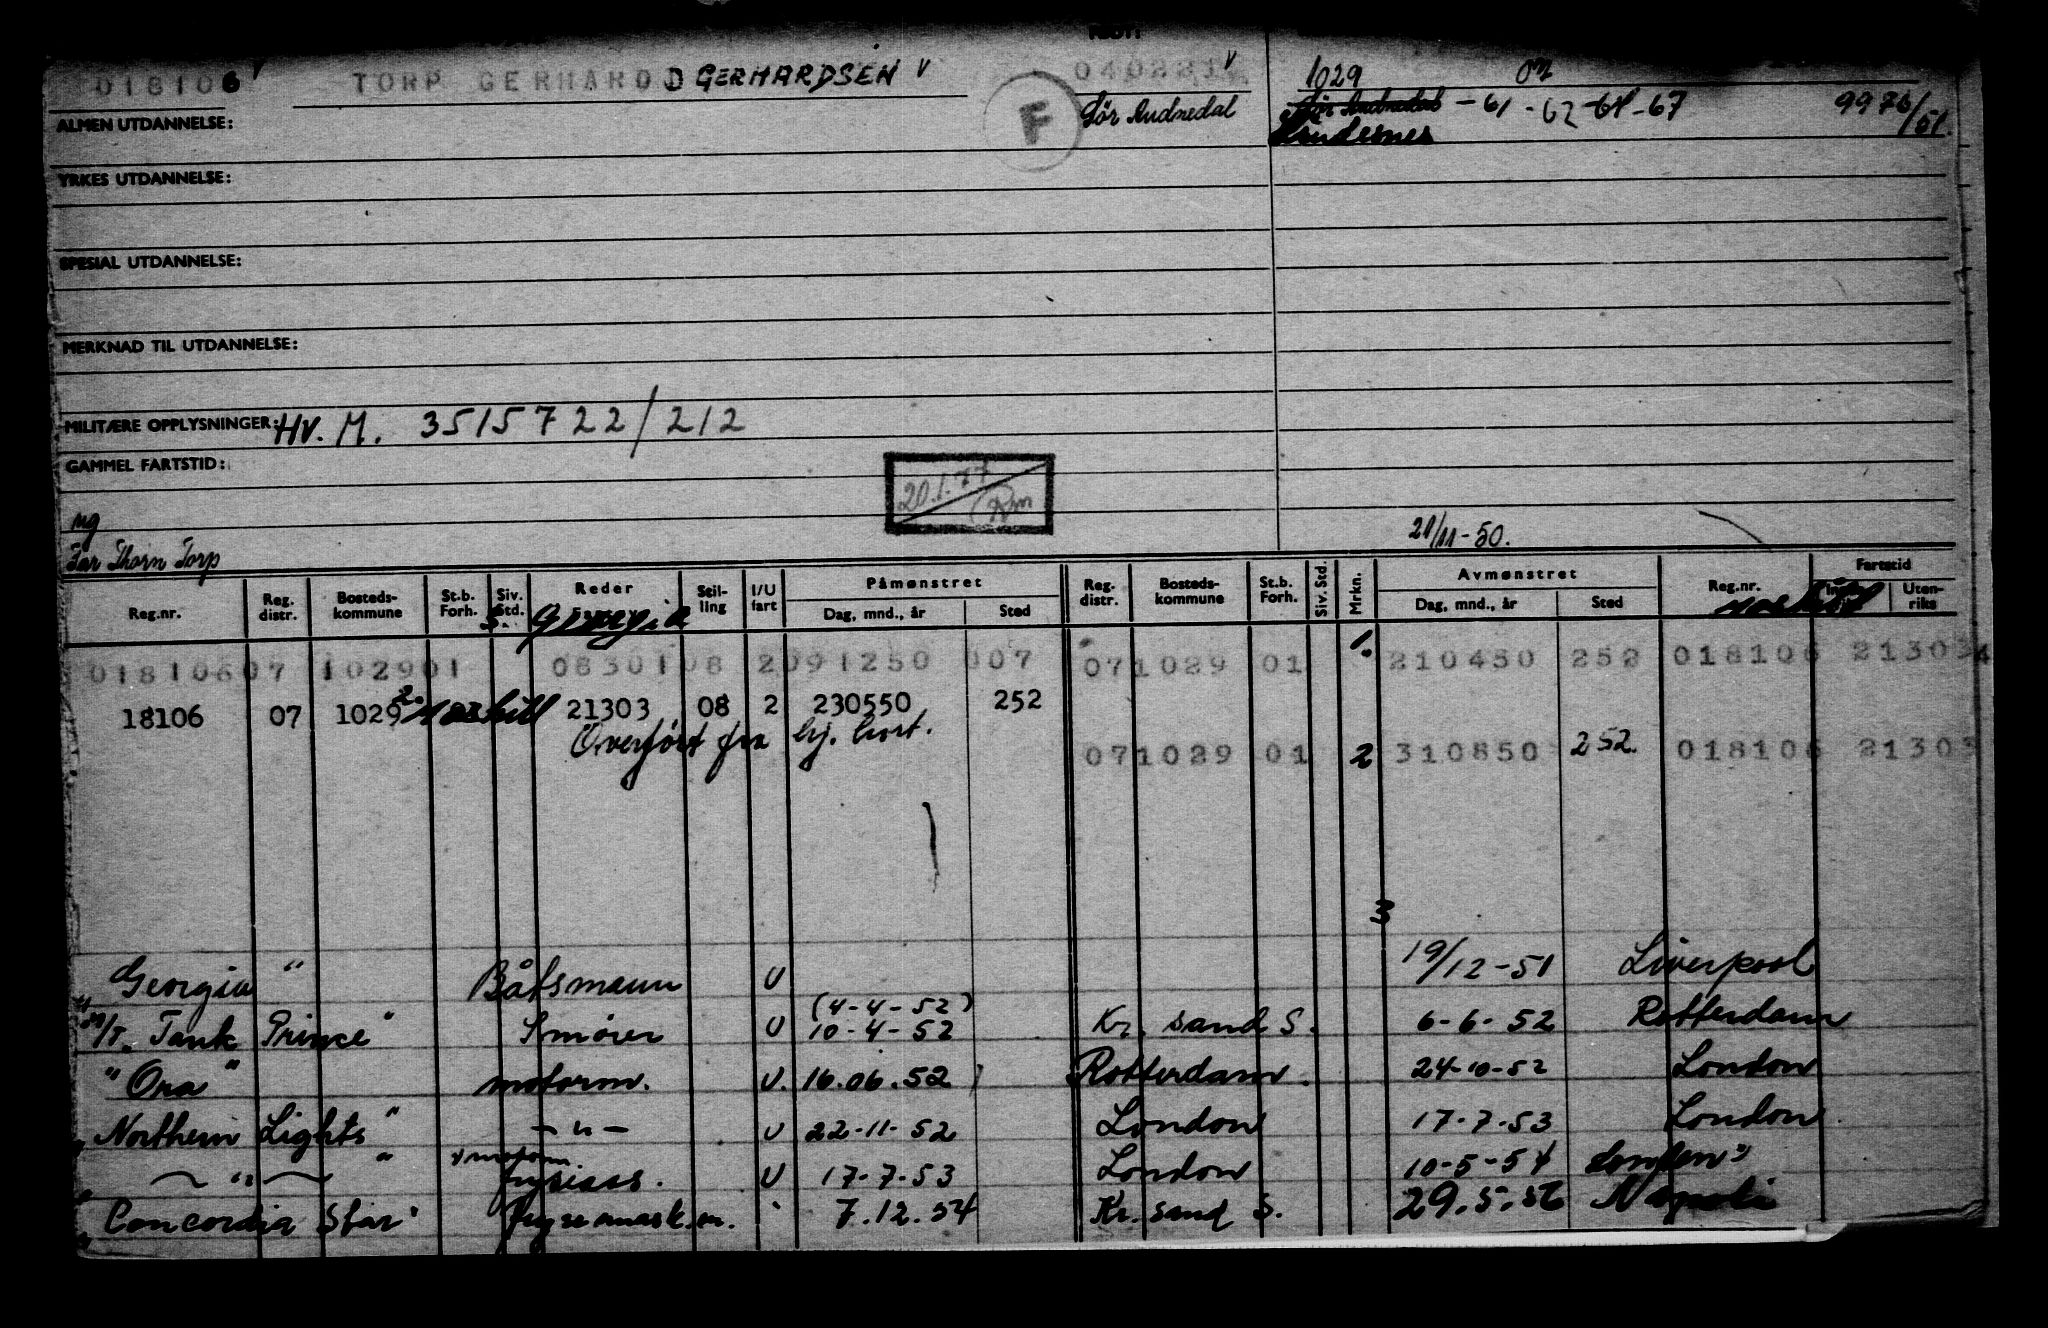 018106 v TORP GERHARD GERHARDSEN v 040221 v 1029
F Sør Audnedal Sør Audnedal - 61 - 62 - 64 - 67 9976/51.
Lindesnes
ALMEN UTDANNELSE:
YRKES UTDANNELSE:
SPESIAL UTDANNELSE:
MERKNAD TIL UTDANNELSE:
MILITÆRE OPPLYSNINGER: HV. M. 3515722/212
GAMMEL FARTSTID:
20.1.77 Rm
ug 21/11-50.
Far Thorn Torp
Reg.nr. Reg. distr. Bosteds-kommune St.b. Forh. Siv. Std. Reder Stil-ling I/U fart Påmønstret Dag, mnd., år Sted Reg. distr. Bosteds-kommune St.b. Forh. Siv. Std. Mrkn. Avmønstret Dag, mnd., år Sted Reg.nr. Fartstid Uten-riks
S. Georgia
018106 07 1029 01 08301 08 2 091250 007 071029 01 1. 210450 252 018106 21303
18106 07 1029 21303 08 2 230550 252
Overført fra hj. kort. 071029 01 2 310850 252. 018106 21303
3
"Georgia" Båtsmann U 19/12-51 Liverpool
(4-4-52)
"M/T. Tank Prince" Smører U 10-4-52 Kr. sand S. 6-6-52 Rotterdam
"Ora" motorm. U. 16.06.52 Rotterdam. 24-10-52 London
"Northern Lights" -"- U 22-11-52 London 17-7-53 London
-"- " motorm.
frysiass. U 17-7-53 London 10-5-54 London"
"Concordia Star" frysemask.m. 7.12.54 Kr. sand S. 29.5.56 Napoli